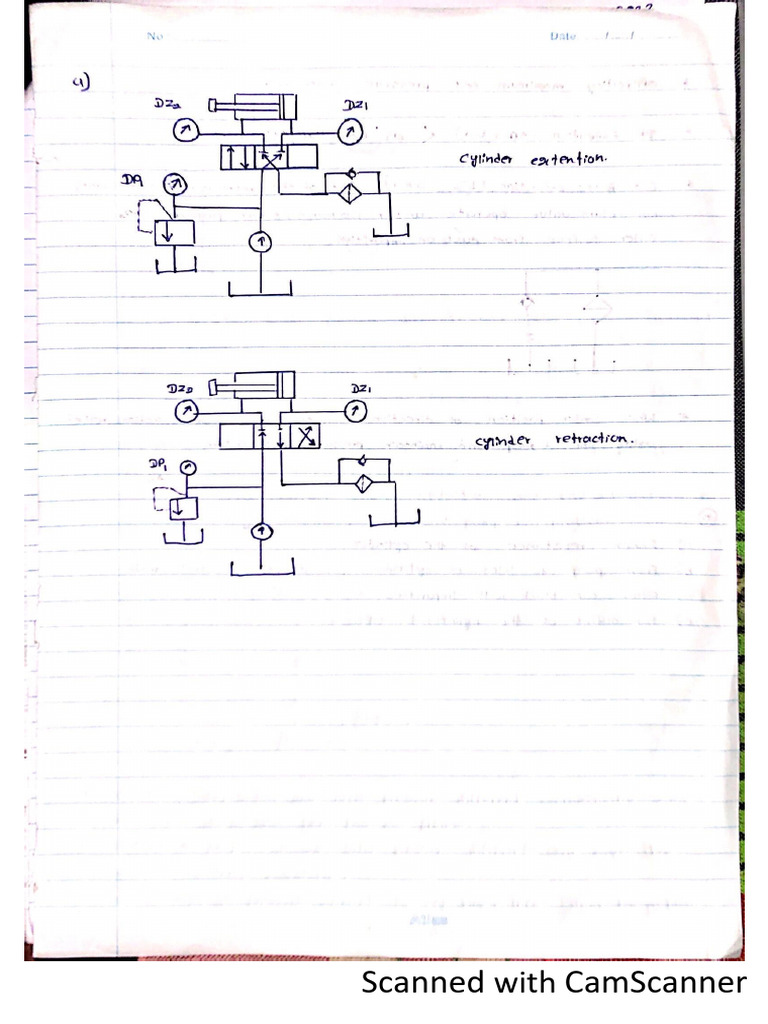 No
Date / /
a)
DZ2
DZ1
Cylinder extention.
DP1
DZ2
DZ1
cylinder retraction.
DP1
Scanned with CamScanner